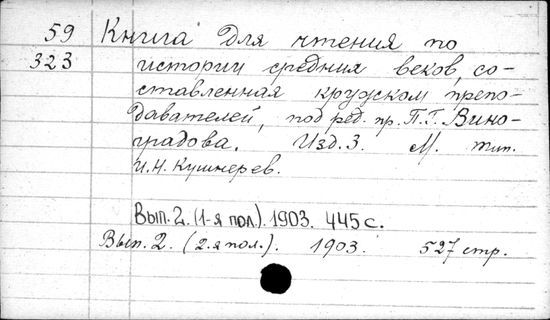 59 Книга для чтения по
323 истории средних веков, со-
ставленная кружком препо-
давателей, под ред. пр. П.Г. Вино-
градова. Изд. 3. М. тип.
И.Н. Кушнерев.
Вып. 2. (1-я пол.). 1903. 445 с.
Вып. 2. (2-я пол.). 1903. 527 стр.